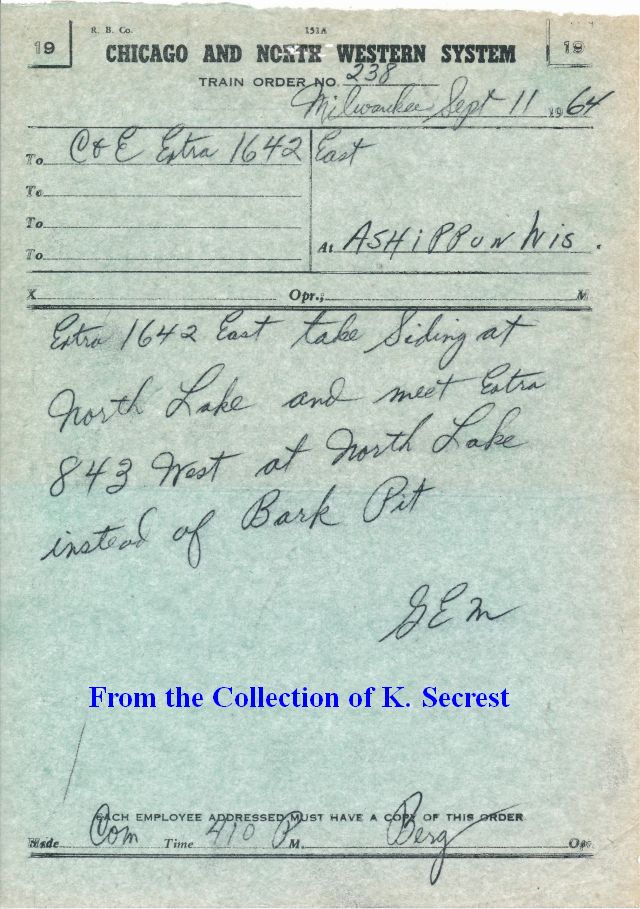 R. B. Co. 151A
19 CHICAGO AND NORTH WESTERN SYSTEM 19
TRAIN ORDER NO. 238
Milwaukee Sept 11 1964
To C & E Extra 1642 East
To
To
To At ASHIPPUN Wis.
X Opr.; M
Extra 1642 East take Siding at
North Lake and meet Extra
843 West at North Lake
instead of Bark Pit
GEM
From the Collection of K. Secrest
EACH EMPLOYEE ADDRESSED MUST HAVE A COPY OF THIS ORDER
Made Com Time 410 P M. Berg Opr.